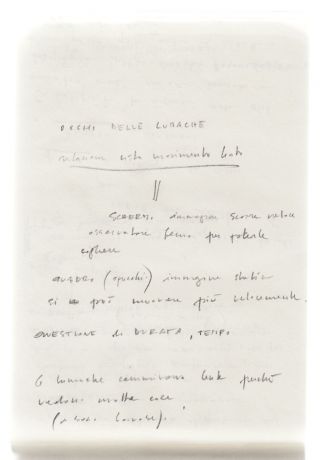 OCCHI DELLE LUMACHE
relazione vista movimento lento
SCHERMO immagini scorre veloce
osservatore fermo per poterle
cogliere
QUADRO (specchi) immagine statica
si può muovere più velocemente.
QUESTIONE di DURATA, TEMPO
lumache camminano lente perché
vedono molte cose